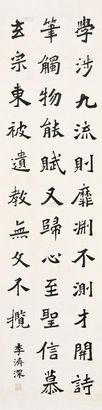 學涉九流則靡淵不測才開詩
筆觸物能賦又歸心至聖信慕
玄宗東被遺教無文不攬
李濟深